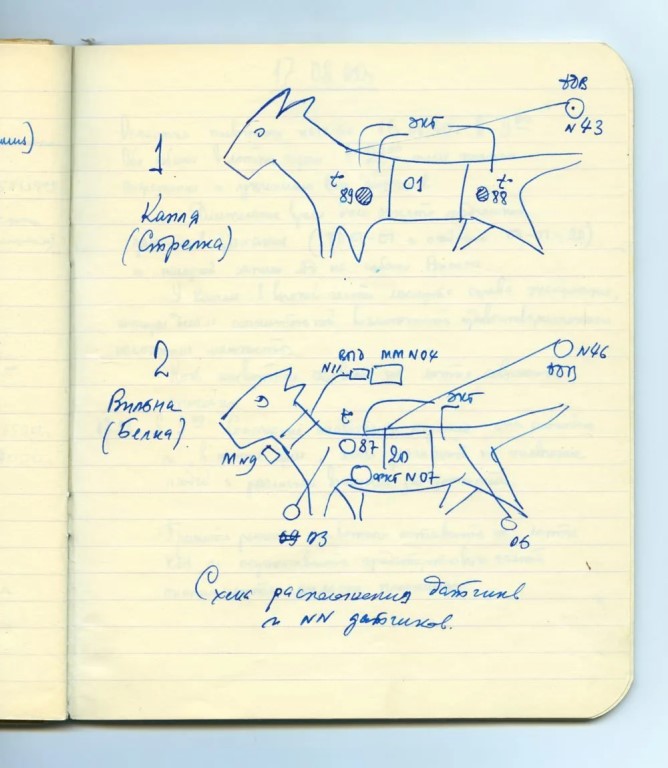 1
Капля
(Стрелка)
ЭКГ
N 43
t
89
01
t
88
2
Вильна
(Белка)
N11
ММ N04
N46
ЭКГ
t
87
20
М N9
ФКГ N07
06
Схема расположения датчиков
и NN датчиков.